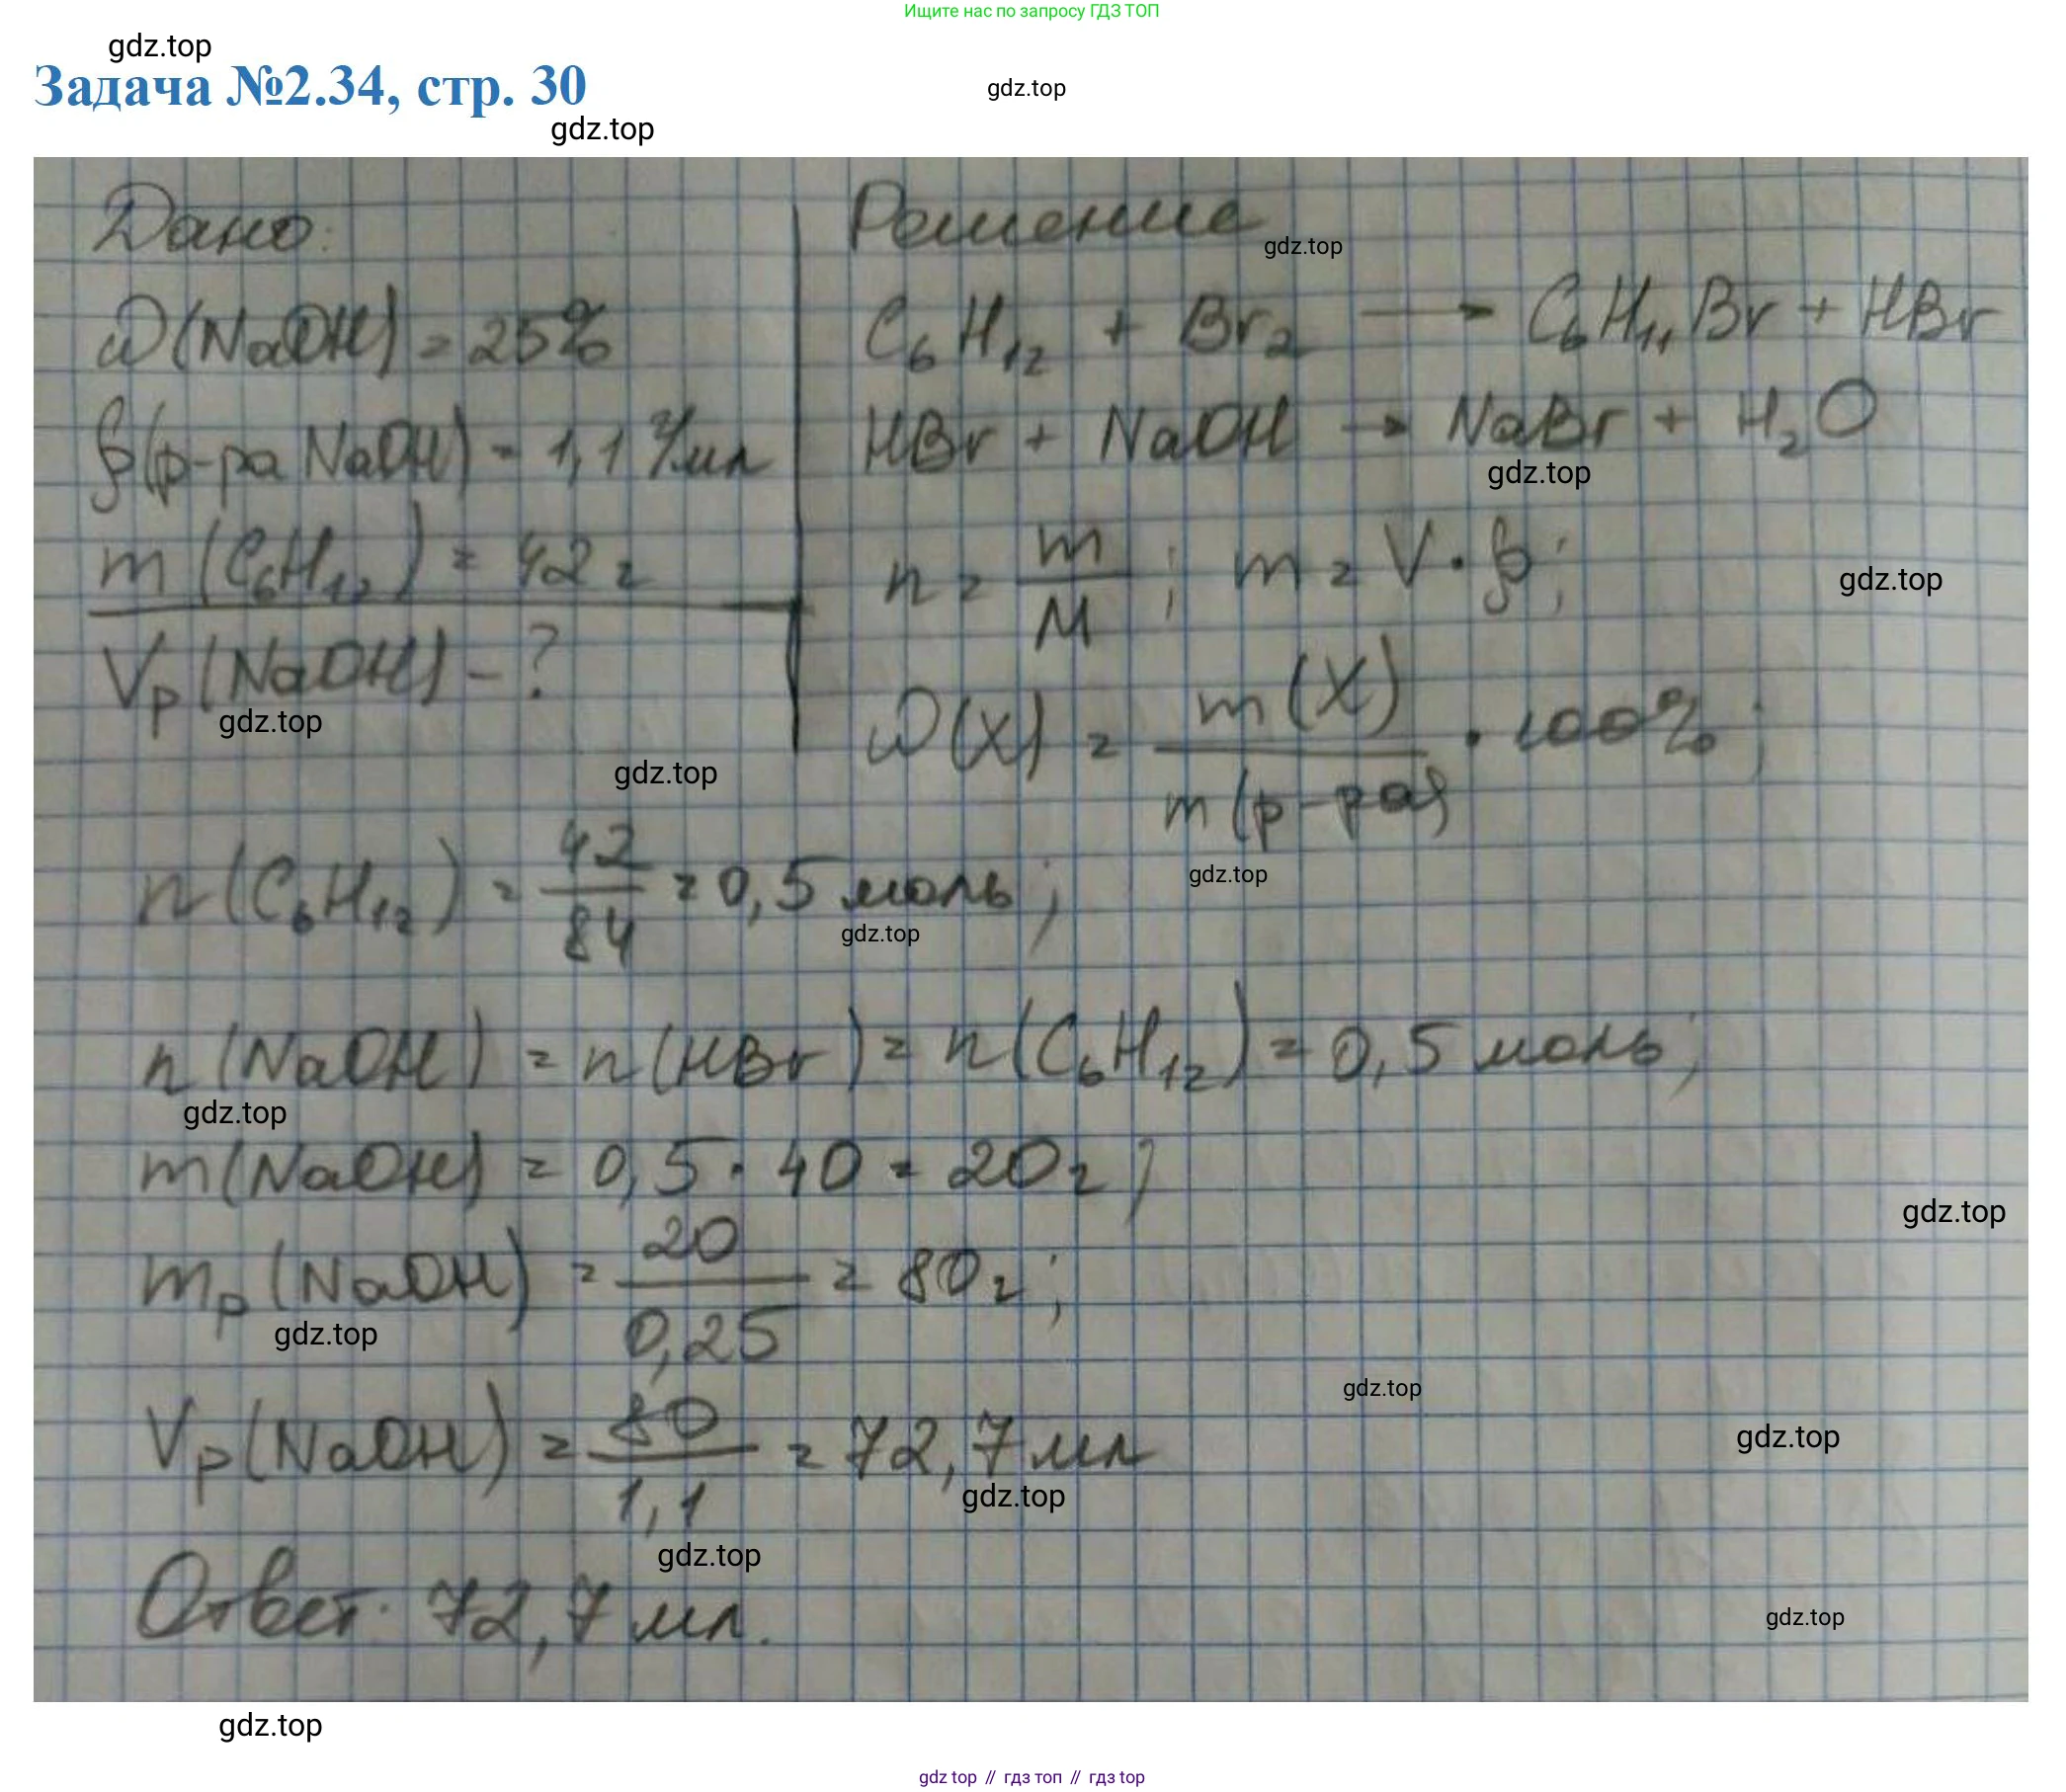 Ищите нас по запросу ГДЗ ТОП
gdz.top
Задача №2.34, стр. 30
gdz.top
gdz.top
Дано:
ω(NaOH) = 25%
ρ(р-ра NaOH) = 1,1 г/мл
m(C₆H₁₂) = 42 г
Vр(NaOH) - ?
gdz.top
gdz.top
Решение
gdz.top
C₆H₁₂ + Br₂ → C₆H₁₁Br + HBr
HBr + NaOH → NaBr + H₂O
gdz.top
n = m/M ; m = V · ρ;
gdz.top
ω(X) = m(X)/m(р-ра) · 100%;
gdz.top
n(C₆H₁₂) = 42/84 = 0,5 моль;
gdz.top
n(NaOH) = n(HBr) = n(C₆H₁₂) = 0,5 моль;
gdz.top
m(NaOH) = 0,5 · 40 = 20 г;
gdz.top
mр(NaOH) = 20/0,25 = 80 г;
gdz.top
gdz.top
Vр(NaOH) = 80/1,1 = 72,7 мл
gdz.top
gdz.top
gdz.top
Ответ: 72,7 мл.
gdz.top
gdz.top
gdz top // гдз топ // гдз top